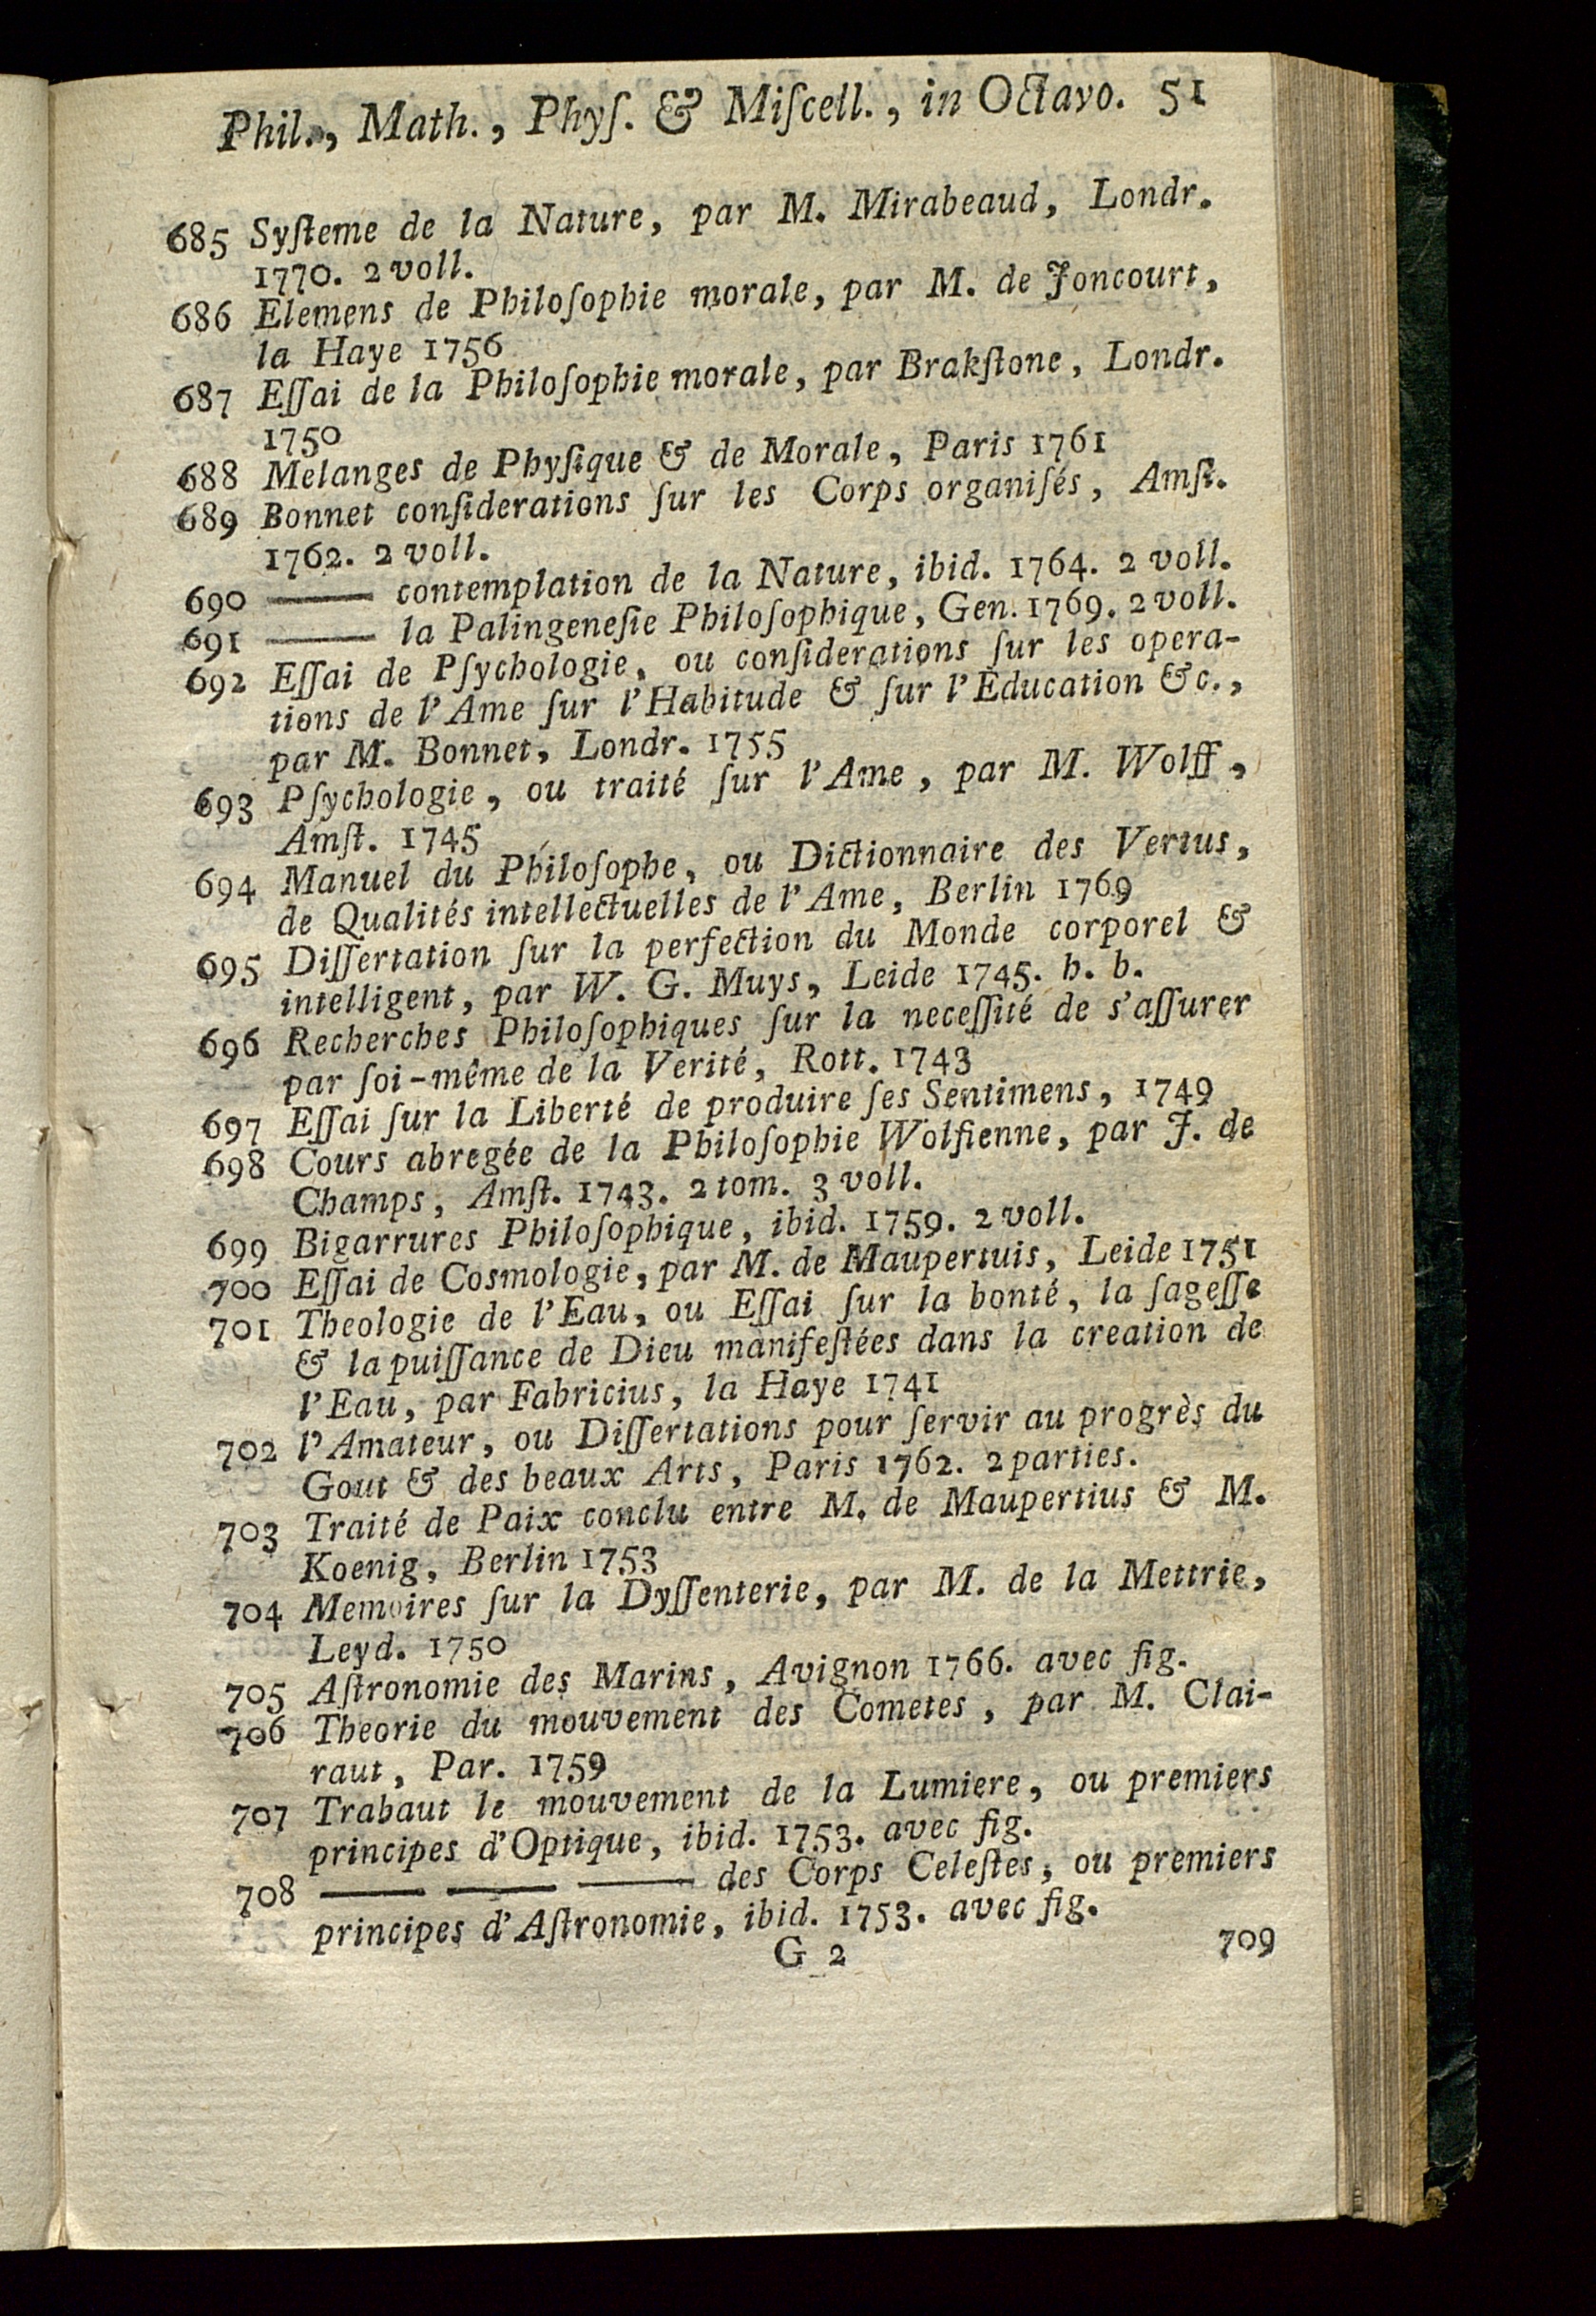 Phil., Math., Phyſ. & Miſcell., in Octavo. 51
685 Syſteme de la Nature, par M. Mirabeaud, Londr.
1770. 2 voll.
686 Elemens de Philoſophie morale, par M. de Joncourt,
la Haye 1756
687 Eſſai de la Philoſophie morale, par Brakſtone, Londr.
1750
688 Melanges de Phyſique & de Morale, Paris 1761
689 Bonnet conſiderations ſur les Corps organiſés, Amſt.
1762. 2 voll.
690 —— contemplation de la Nature, ibid. 1764. 2 voll.
691 —— la Palingeneſie Philoſophique, Gen. 1769. 2 voll.
692 Eſſai de Pſychologie, ou conſiderations ſur les opera-
tions de l'Ame ſur l'Habitude & ſur l'Education &c.,
par M. Bonnet, Londr. 1755
693 Pſychologie, ou traité ſur l'Ame, par M. Wolff,
Amſt. 1745
694 Manuel du Philoſophe, ou Dictionnaire des Vertus,
de Qualités intellectuelles de l'Ame, Berlin 1769
695 Diſſertation ſur la perfection du Monde corporel &
intelligent, par W. G. Muys, Leide 1745. h. b.
696 Recherches Philoſophiques ſur la neceſſité de s'aſſurer
par ſoi-même de la Verité, Rott. 1743
697 Eſſai ſur la Liberté de produire ſes Sentimens, 1749
698 Cours abregée de la Philoſophie Wolfienne, par J. de
Champs, Amſt. 1743. 2 tom. 3 voll.
699 Bigarrures Philoſophique, ibid. 1759. 2 voll.
700 Eſſai de Cosmologie, par M. de Maupertuis, Leide 1751
701 Theologie de l'Eau, ou Eſſai ſur la bonté, la ſageſſe
& la puiſſance de Dieu manifeſtées dans la creation de
l'Eau, par Fabricius, la Haye 1741
702 l'Amateur, ou Diſſertations pour ſervir au progrès du
Gout & des beaux Arts, Paris 1762. 2 parties.
703 Traité de Paix conclu entre M. de Maupertius & M.
Koenig, Berlin 1753
704 Memoires ſur la Dyſſenterie, par M. de la Mettrie,
Leyd. 1750
705 Aſtronomie des Marins, Avignon 1766. avec fig.
706 Theorie du mouvement des Cometes, par M. Clai-
raut, Par. 1759
707 Trabaut le mouvement de la Lumiere, ou premiers
principes d'Optique, ibid. 1753. avec fig.
708 —— —— —— des Corps Celeſtes, ou premiers
principes d'Aſtronomie, ibid. 1753. avec fig.
G 2 709